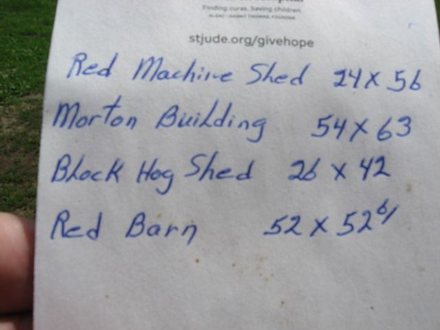 Finding cures. Saving children.
ALSAC • DANNY THOMAS, FOUNDER
stjude.org/givehope
Red Machine Shed 24 x 56
Morton Building 54 x 63
Block Hog Shed 26 x 42
Red Barn 52 x 52 6/